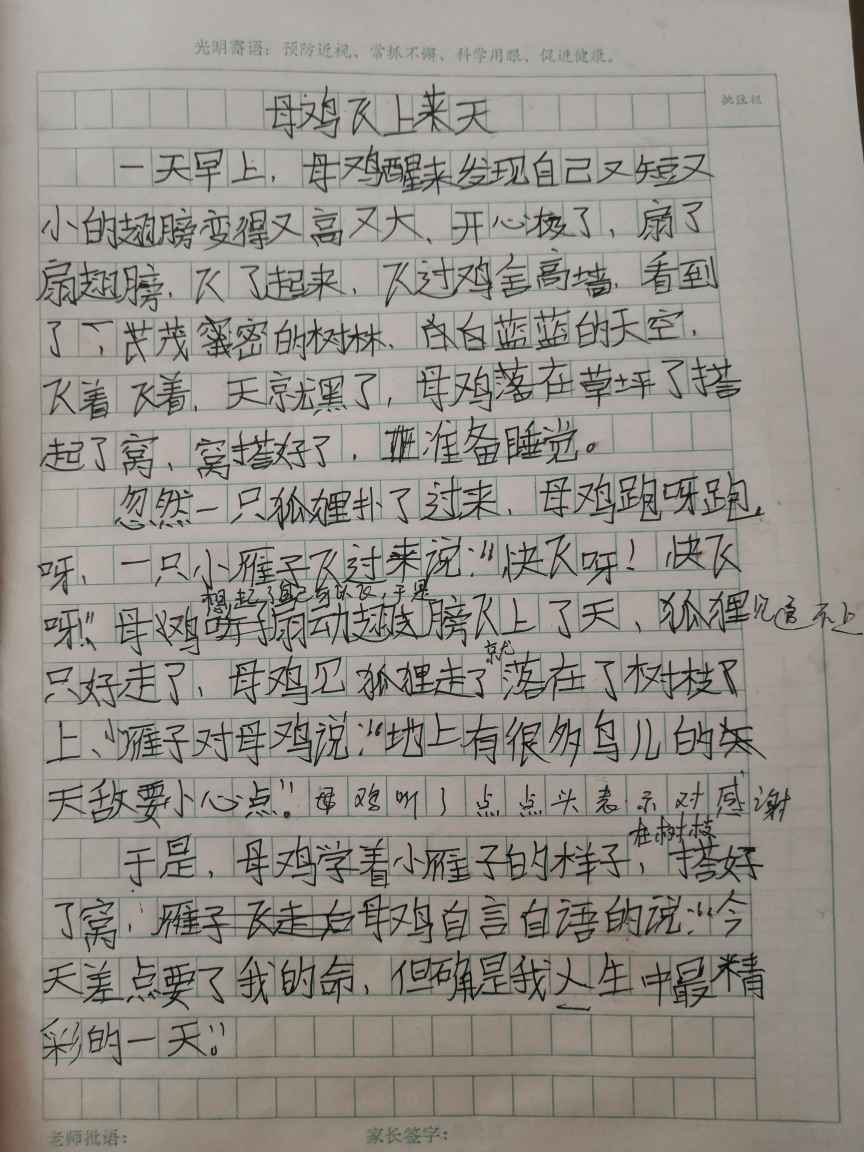 光明寄语：预防近视、常抓不懈、科学用眼、促进健康。
批注栏
母鸡飞上来天
一天早上，母鸡醒来发现自己又短又
小的翅膀变得又高又大、开心极了，扇了
扇翅膀，飞了起来，飞过鸡舍高墙，看到
了，茂密的树林、白白蓝蓝的天空，
飞着飞着，天就黑了，母鸡落在草坪了搭
起了窝、窝搭好了，准备睡觉。
忽然一只狐狸扑了过来，母鸡跑呀跑
呀、一只小雁子飞过来说：“快飞呀！快飞
想起了自己有，于是
呀”母鸡扇动翅膀飞上了天、狐狸见追不上
只好走了，母鸡见狐狸走了就落在了树枝
上、小雁子对母鸡说：“地上有很多鸟儿的
天敌要小心点”。母鸡听了点点头表示对感谢
于是，母鸡学着小雁子的样子，在树枝搭好
了窝，雁子飞走后母鸡自言自语的说：“今
天差点要了我的命，但确是我人生中最精
彩的一天”。
老师批语： 家长签字：